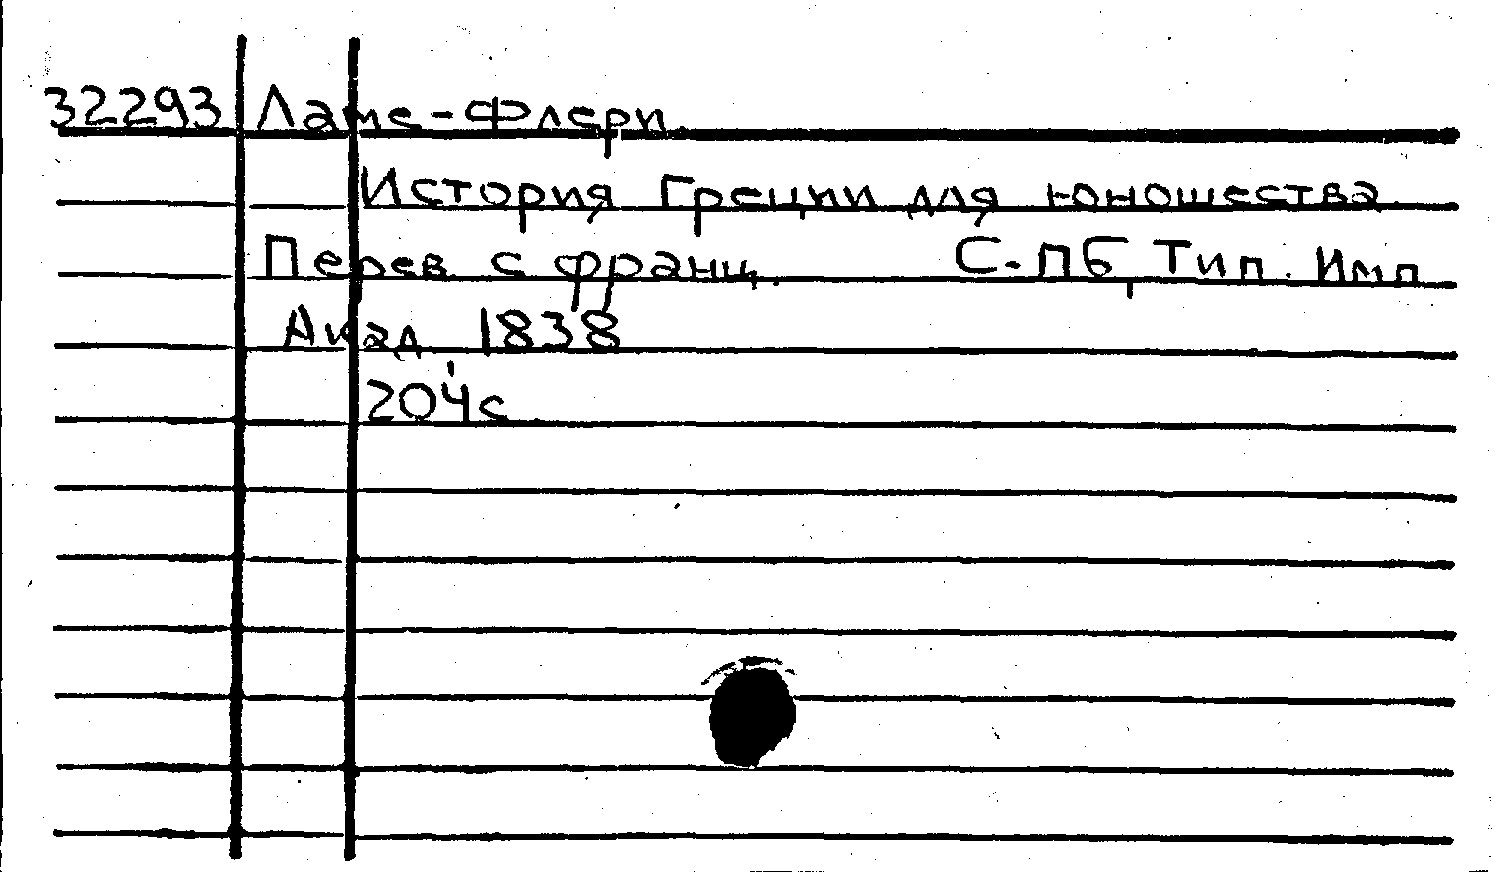 32293 Ламе-Флери.
История Греции для юношества.
Перев. с франц. С.-ПБ, Тип. Имп.
Акад., 1838
204 с.